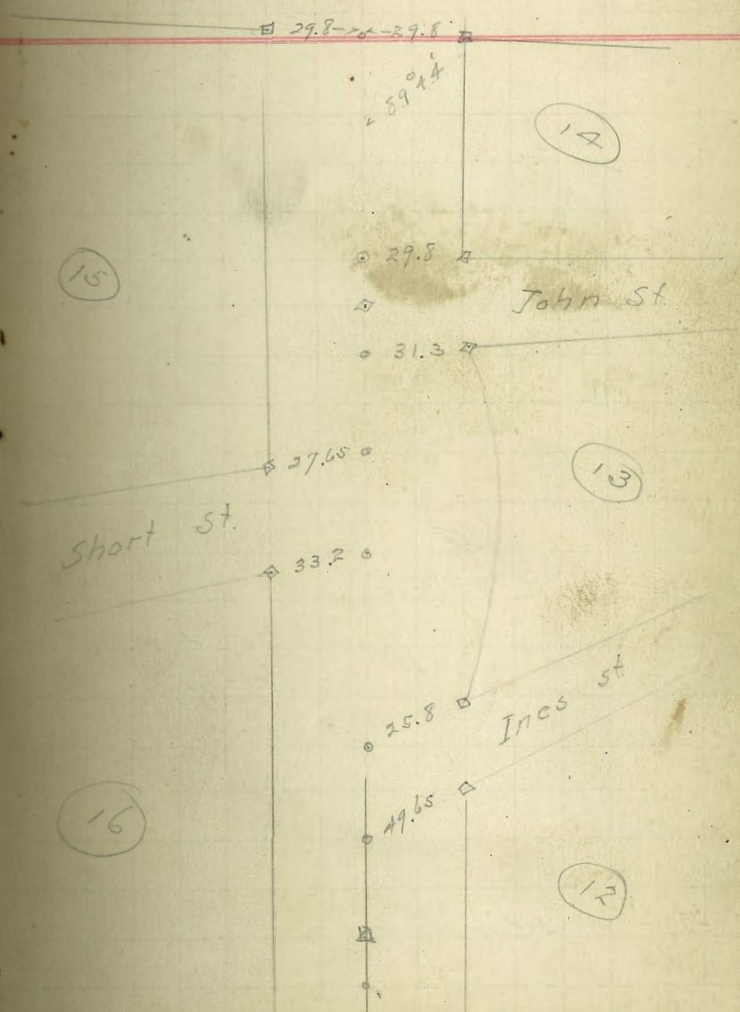 29.8 29.8
59° 44'
14
15
29.8
John St.
31.3
27.65
13
Short St.
33.2
25.8
Ines St.
49.65
16
12